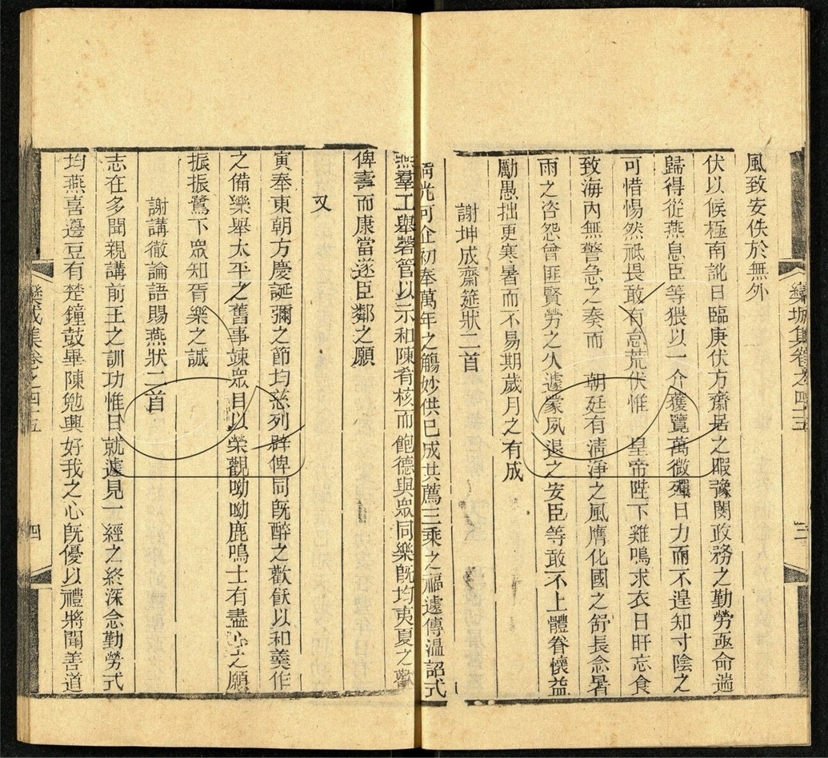 欒城集卷之四十五
三
風致安佚於無外
伏以候極南訛日臨庚伏方齋居之暇豫閔政務之勤勞亟命遄
歸得從燕息臣等猥以一介獲覽萬微殫日力而不遑知寸陰之
可惜惕然祗畏敢有怠荒伏惟 皇帝陛下雞鳴求衣日旰忘食
致海內無警急之奏而 朝廷有清淨之風膺化國之舒長念暑
雨之咨怨曾匪賢勞之久遽蒙夙退之安臣等敢不上體眷懷益
勵愚拙更寒暑而不易期歲月之有成
謝坤成齋筵狀二首
光可企初奉萬年之觴妙供已成共薦三乘之福遽傳溫詔式
燕羣工舉磬管以示和陳肴核而飽德與眾同樂既均夷夏之歡
俾壽而康當遂臣鄰之願
又
寅奉東朝方慶誕彌之節均慈列辟俾同既醉之歡飫以和羹作
之備樂舉太平之舊事竦眾目以榮觀呦呦鹿鳴士有盡心之願
振振鷺下眾知胥樂之誠
謝講徹論語賜燕狀二首
志在多聞親講前王之訓功惟日就遽見一經之終深念勤勞式
均燕喜邊豆有楚鐘鼓畢陳勉興好我之心既優以禮將聞善道
欒城集卷之四十五
四